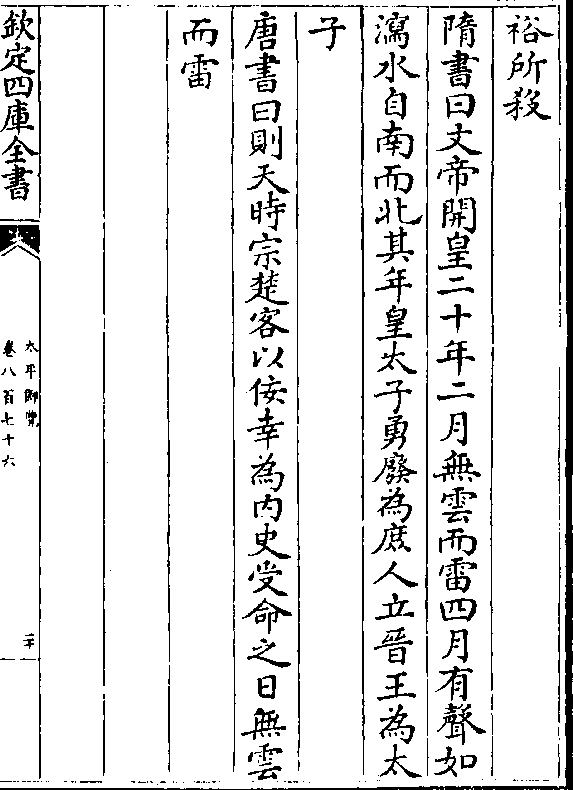 裕所殺
隋書曰文帝開皇二十年二月無雲而雷四月有聲如
瀉水自南而北其年皇太子勇廢為庶人立晉王為太
子
唐書曰則天時宗楚客以佞幸為內史受命之日無雲
而雷
欽定四庫全書
太平御覽
卷八百七十六
二十